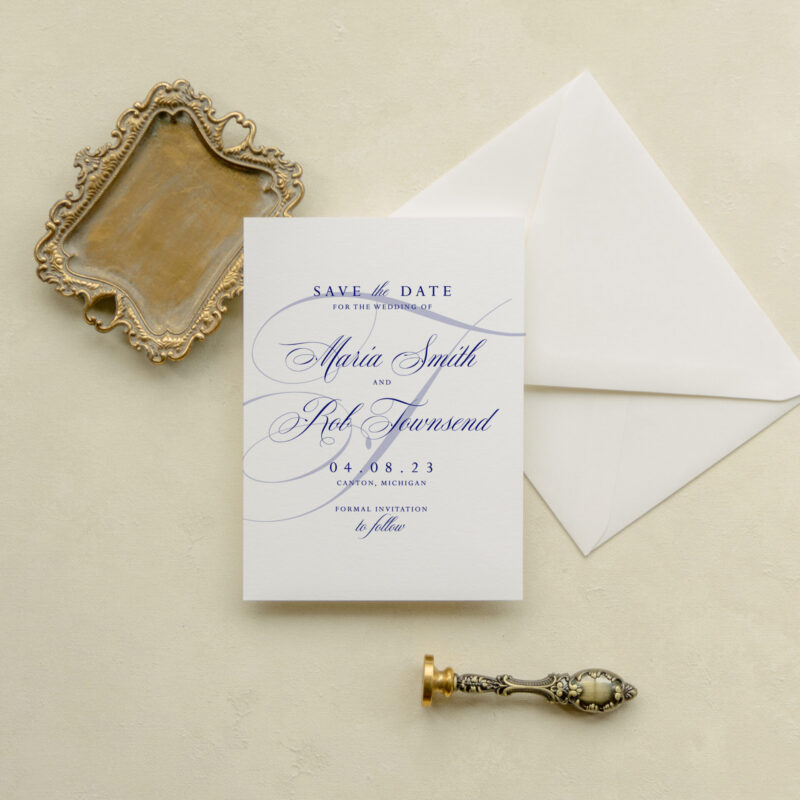 SAVE the DATE
FOR THE WEDDING OF
Maria Smith
AND
Rob Townsend
04.08.23
CANTON, MICHIGAN
FORMAL INVITATION
to follow